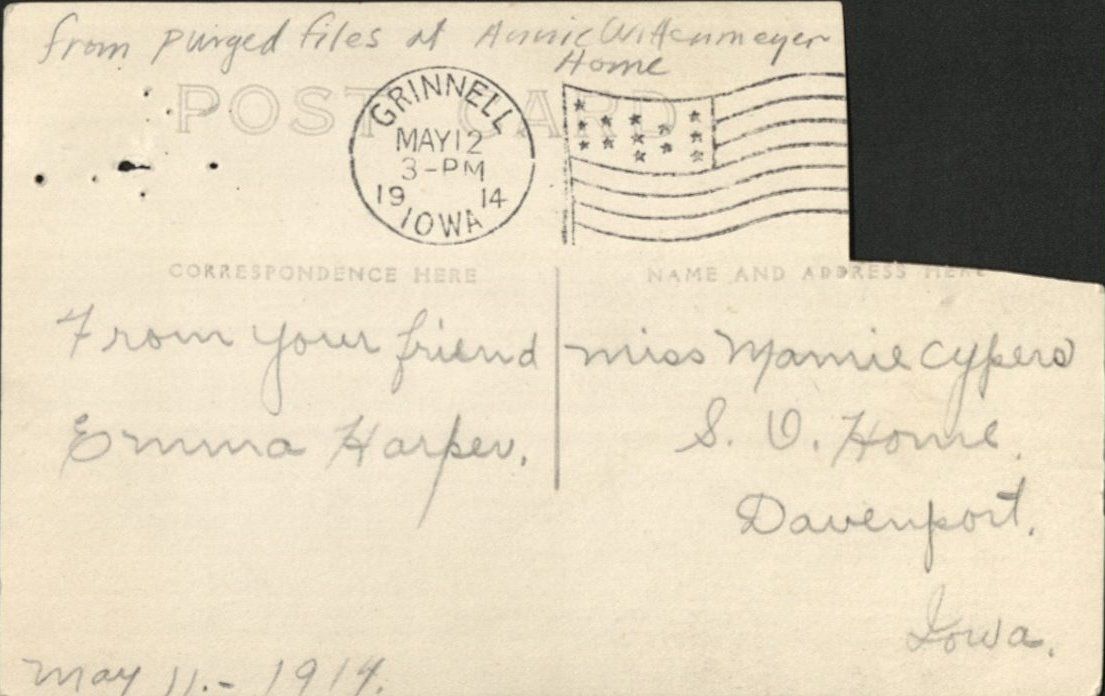 from purged files at Annie Wittenmeyer
Home
POST CARD
GRINNELL
MAY 12
3-PM
19 14
IOWA
CORRESPONDENCE HERE
NAME AND ADDRESS HERE
From your friend
Emma Harper.
miss Mamie Cypers
S. O. Home.
Davenport.
Iowa.
May 11.- 1914.